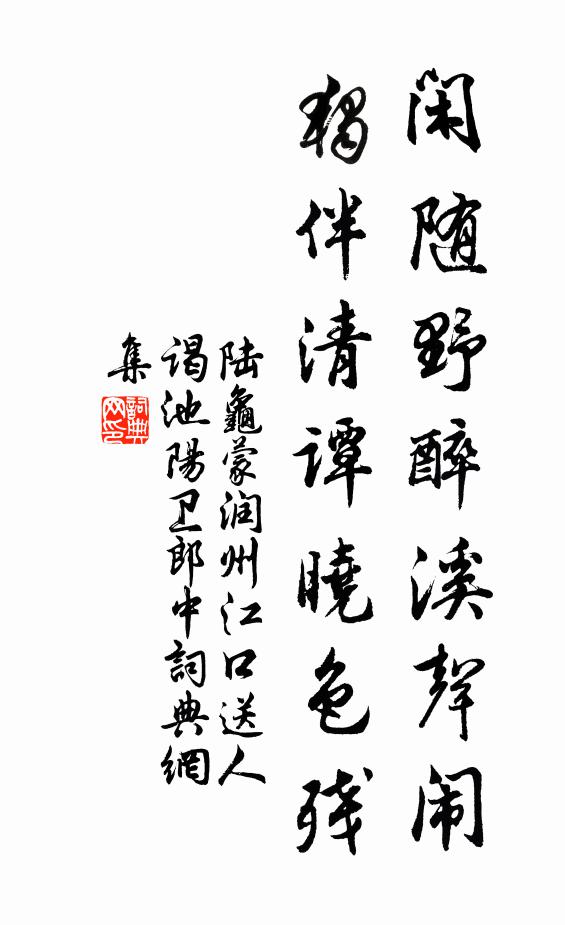 闲随野醉溪聲闹
獨伴清谭曉色残
陆龜蒙润州江口送人
谒池陽卫郎中詞典網
集
詞典
网印